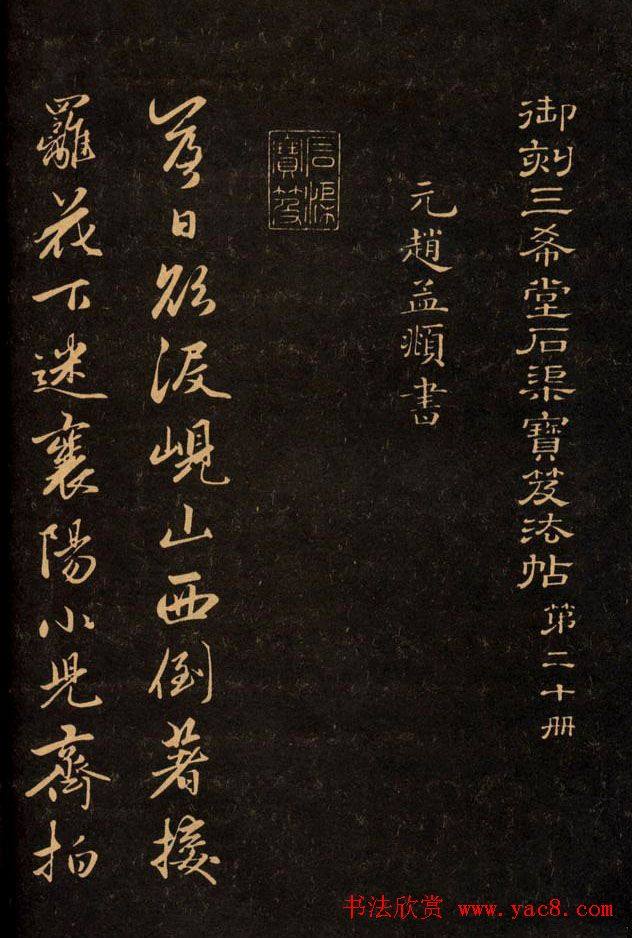 御刻三希堂石渠寶笈法帖 第二十册
元趙孟頫書
石渠寶笈
落日欲没峴山西倒著接
䍦花下迷襄陽小児齊拍
书法欣赏 www.yac8.com